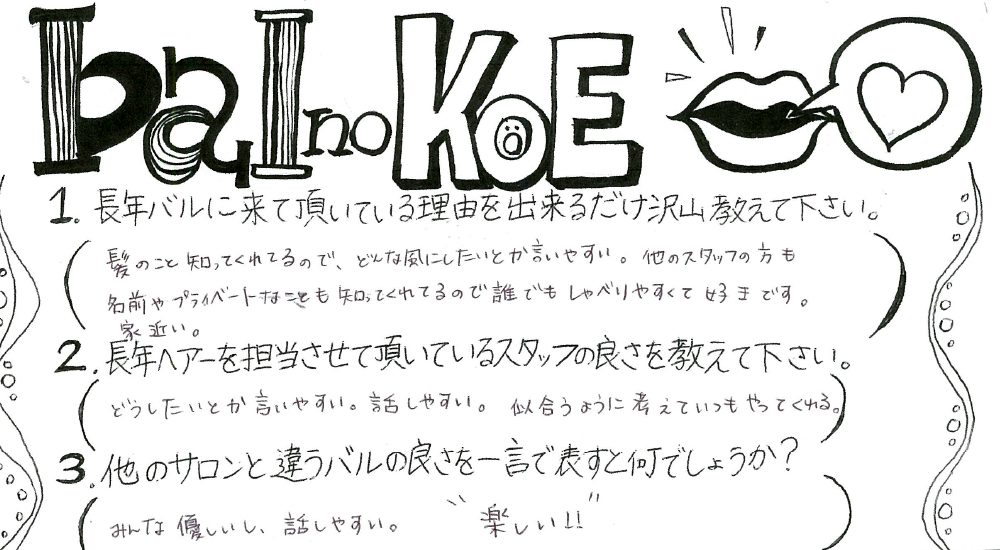 bal no KoE
1. 長年バルに来て頂いている理由を出来るだけ沢山教えて下さい。
髪のこと知ってくれてるので、どんな風にしたいとか言いやすい。他のスタッフの方も
名前やプライベートなことも知ってくれてるので誰でもしゃべりやすくて好きです。
家近い。
2. 長年ヘアーを担当させて頂いているスタッフの良さを教えて下さい。
どうしたいとか言いやすい。話しやすい。似合うように考えていつもやってくれる。
3. 他のサロンと違うバルの良さを一言で表すと何でしょうか？
みんな優しいし、話しやすい。 "楽しい!!"